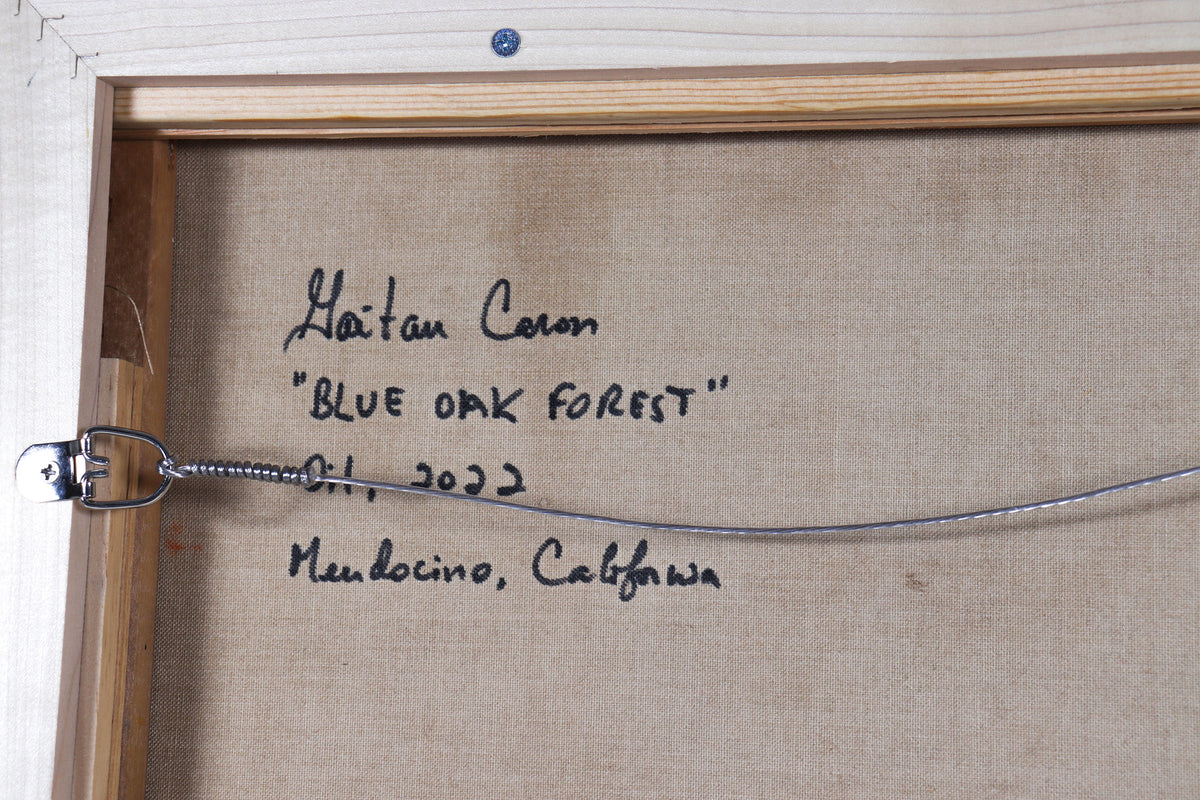 Gaétan Caron
"BLUE OAK FOREST"
Oil, 2022
Mendocino, California